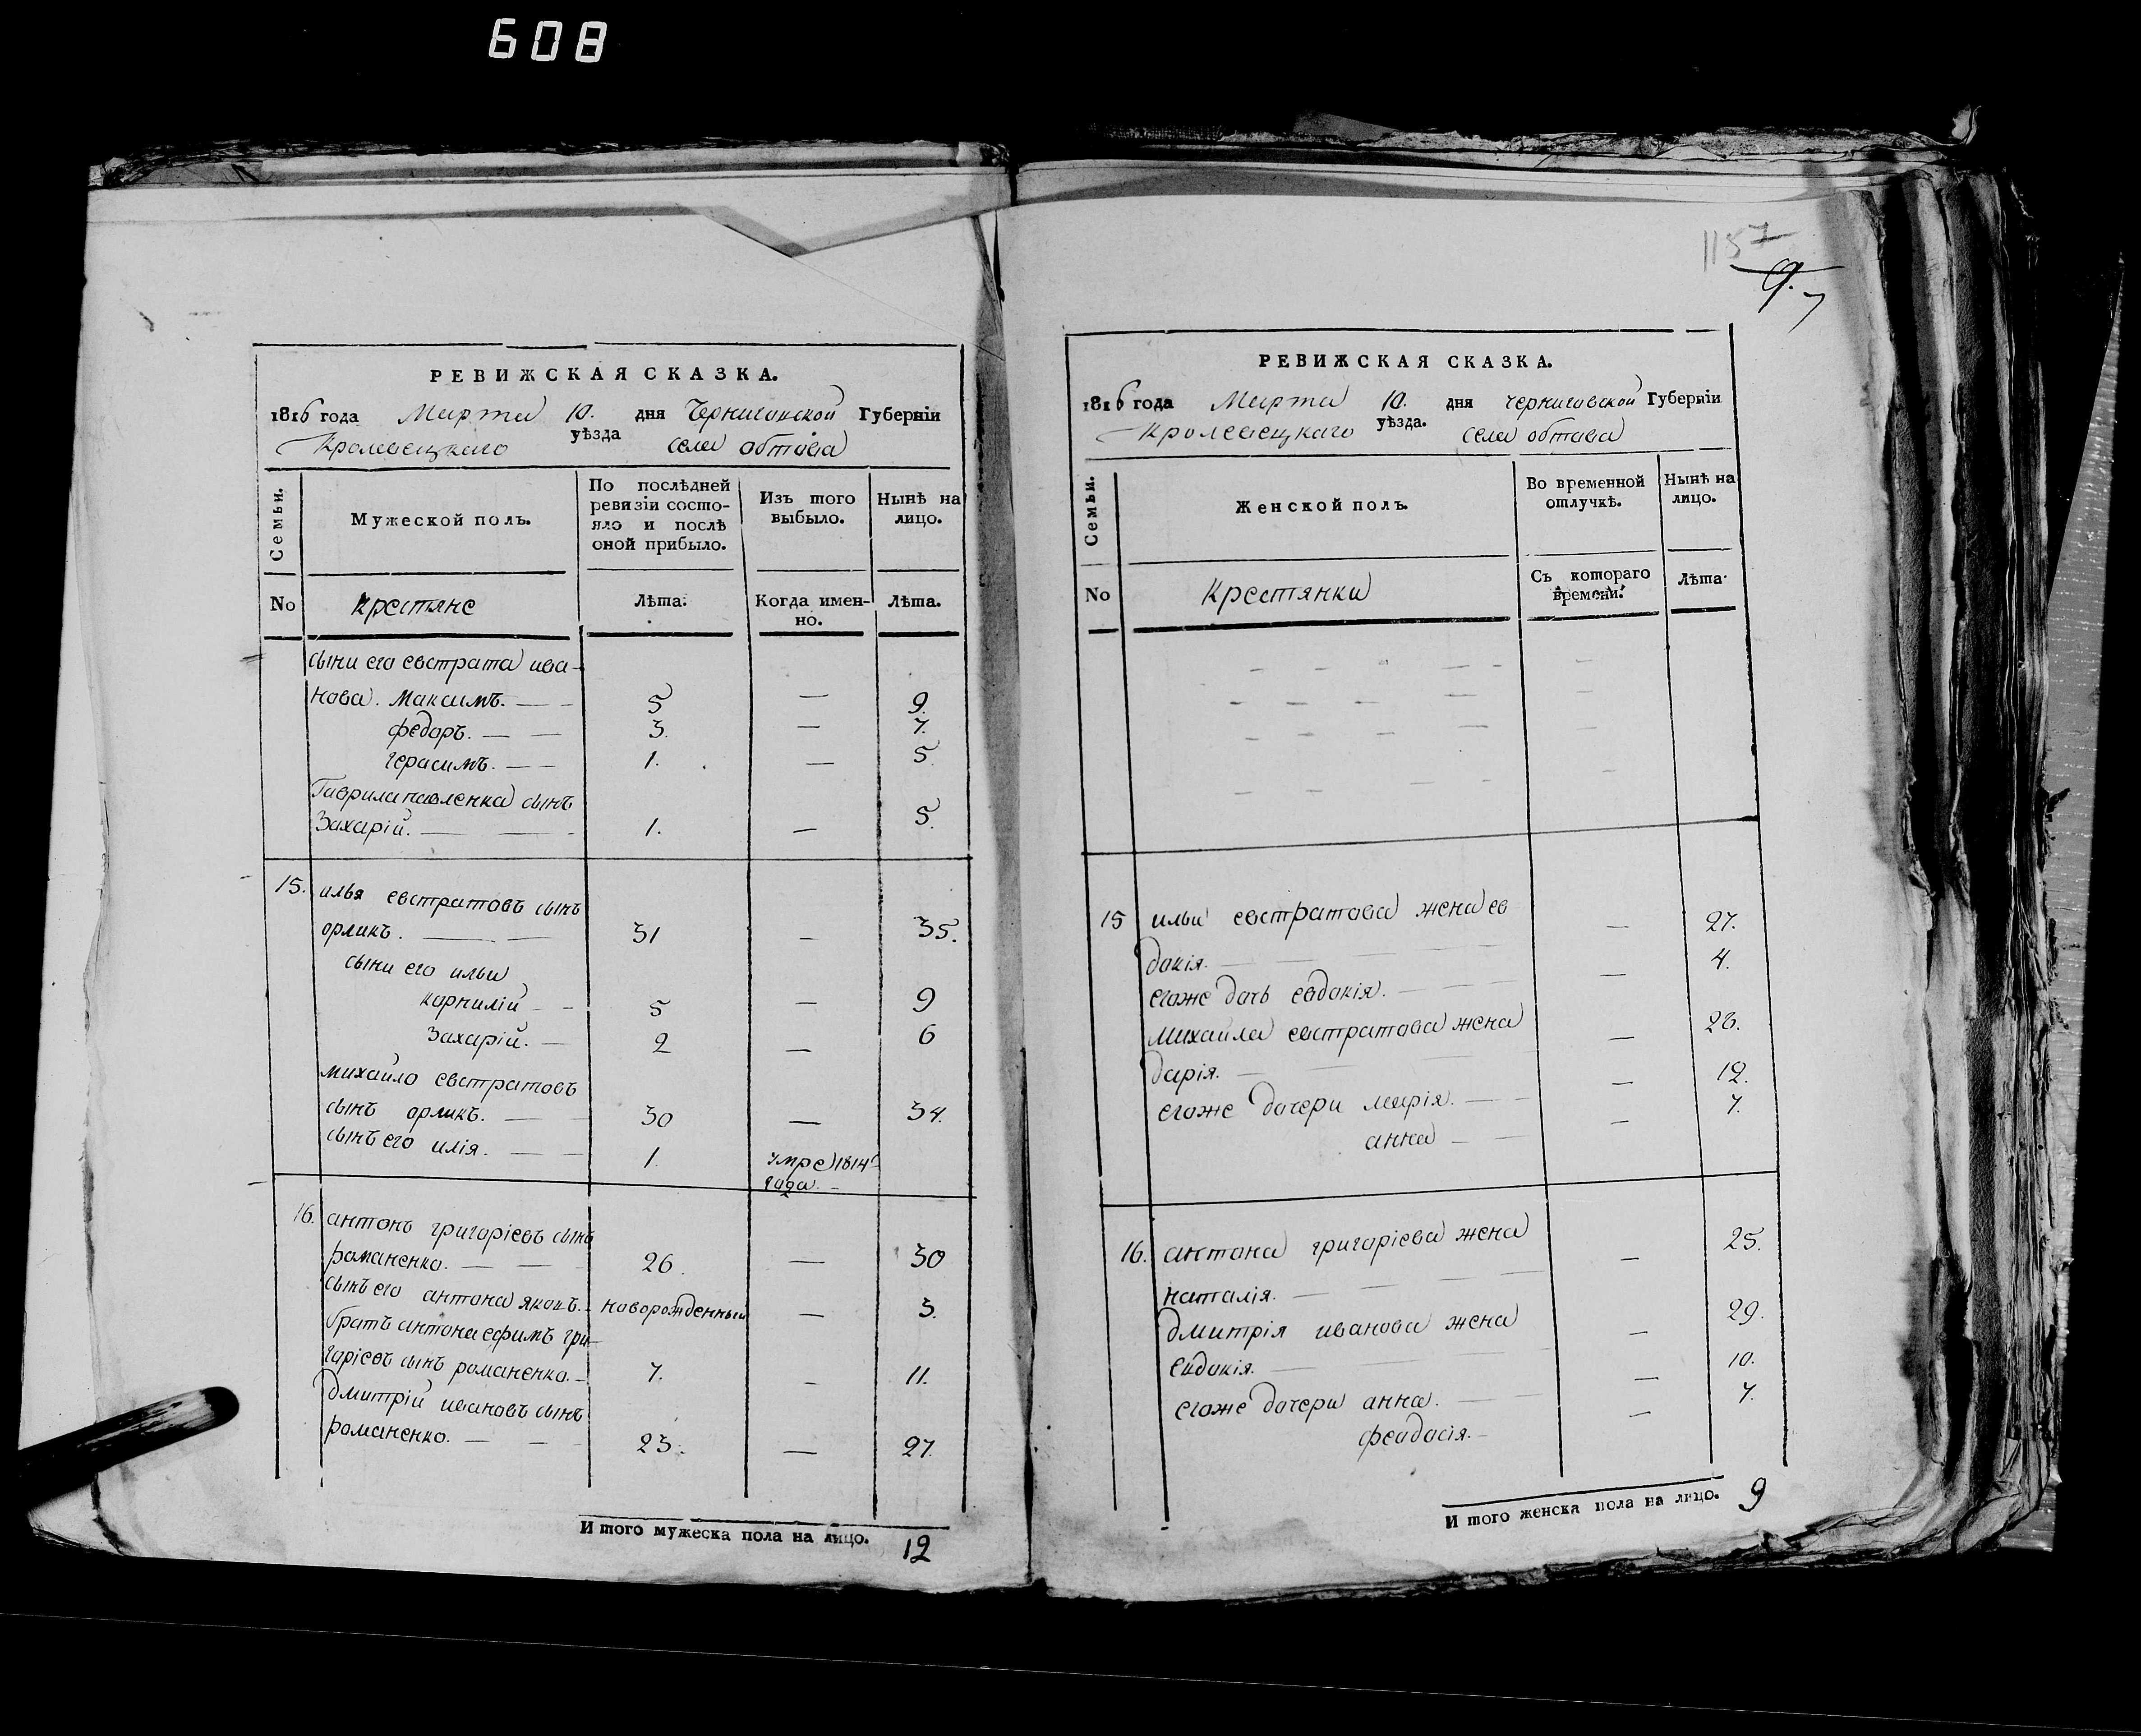 608
РЕВИЖСКАЯ СКАЗКА.
1816 года Марта 10. дня Черниговской Губерніи
Кролевецкаго уѣзда села обтова
Семьи.
Мужеской полъ.
По послѣдней ревизіи состояло и послѣ оной прибыло.
Изъ того выбыло.
Нынѣ на лицо.
No крестяне Лѣта. Когда именно. Лѣта.
сыни его евстрата ива-
нова. Максимъ. — - 5 — 9.
федоръ. — — 3. — 7.
герасимъ. — — 1. — 5.
Гаврила павленка сынъ
Захарій. — — - 1. — 5.
15. илья евстратовъ сынъ
орликъ. — — 31 — 35.
сыни его ильи
корнилій — - 5 — 9
Захарій. — 2 — 6
михайло евстратовъ
сынъ орликъ. — — 30 — 34.
сынъ его илія. — — 1. умре 1814г
года. -
16. антонъ григоріевъ сынъ
романенко. — — - 26. — 30
сынъ его антона яковъ. - новорожденный — 3.
братъ антона ефимъ гри-
горіевъ сынъ романенко. - 7. — 11.
дмитрій ивановъ сынъ
романенко. — — - 23. — 27.
Итого мужеска пола на лицо. 12
1157
9.
РЕВИЖСКАЯ СКАЗКА.
1816 года Марта 10. дня черниговской Губерніи
Кролевецкаго уѣзда. села обтова
Семьи.
Женской полъ.
Во временной отлучкѣ.
Нынѣ на лицо.
No Крестянки Съ котораго времени. Лѣта.
15 ильи евстратова жена ев
докія. — — — — — 27.
егоже дочь евдокія. — — — — 4.
михайла евстратова жена
дарія. — — — — 26.
егоже дочери марія. — - — 12.
анна — — — 7.
16. антона григоріева жена
наталія. — — — — — 25.
дмитрія иванова жена
евдокія. — — — — 29.
егоже дочери анна. — — — 10.
феодосія. - — 7.
Итого женска пола на лицо. 9